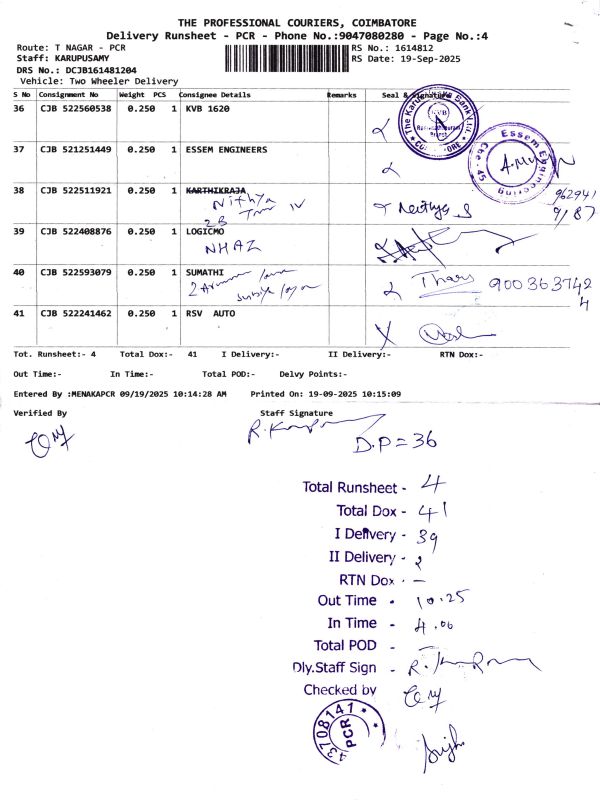 THE PROFESSIONAL COURIERS, COIMBATORE
Delivery Runsheet - PCR - Phone No.:9047080280 - Page No.:4
Route: T NAGAR - PCR
RS No.: 1614812
Staff: KARUPUSAMY
RS Date: 19-Sep-2025
DRS No.: DCJB161481204
Vehicle: Two Wheeler Delivery
S No Consignment No Weight PCS Consignee Details Remarks Seal & Signature
36 CJB 522560538 0.250 1 KVB 1620
37 CJB 521251449 0.250 1 ESSEM ENGINEERS
Essem Engineering
38 CJB 522511921 0.250 1 KARTHIKRAJA
Nithya
2B
962941
9/87
39 CJB 522408876 0.250 1 LOGICMO
NHAZ
40 CJB 522593079 0.250 1 SUMATHI
900363742
4
41 CJB 522241462 0.250 1 RSV AUTO
Tot. Runsheet:- 4 Total Dox:- 41 I Delivery:- II Delivery:- RTN Dox:-
Out Time:- In Time:- Total POD:- Delvy Points:-
Entered By :MENAKAPCR 09/19/2025 10:14:28 AM Printed On: 19-09-2025 10:15:09
Verified By Staff Signature
D.P = 36
Total Runsheet - 4
Total Dox - 41
I Delivery - 39
II Delivery - 2
RTN Dox - —
Out Time - 10.25
In Time - 4.00
Total POD -
Dly.Staff Sign -
Checked by
43708141
PCR